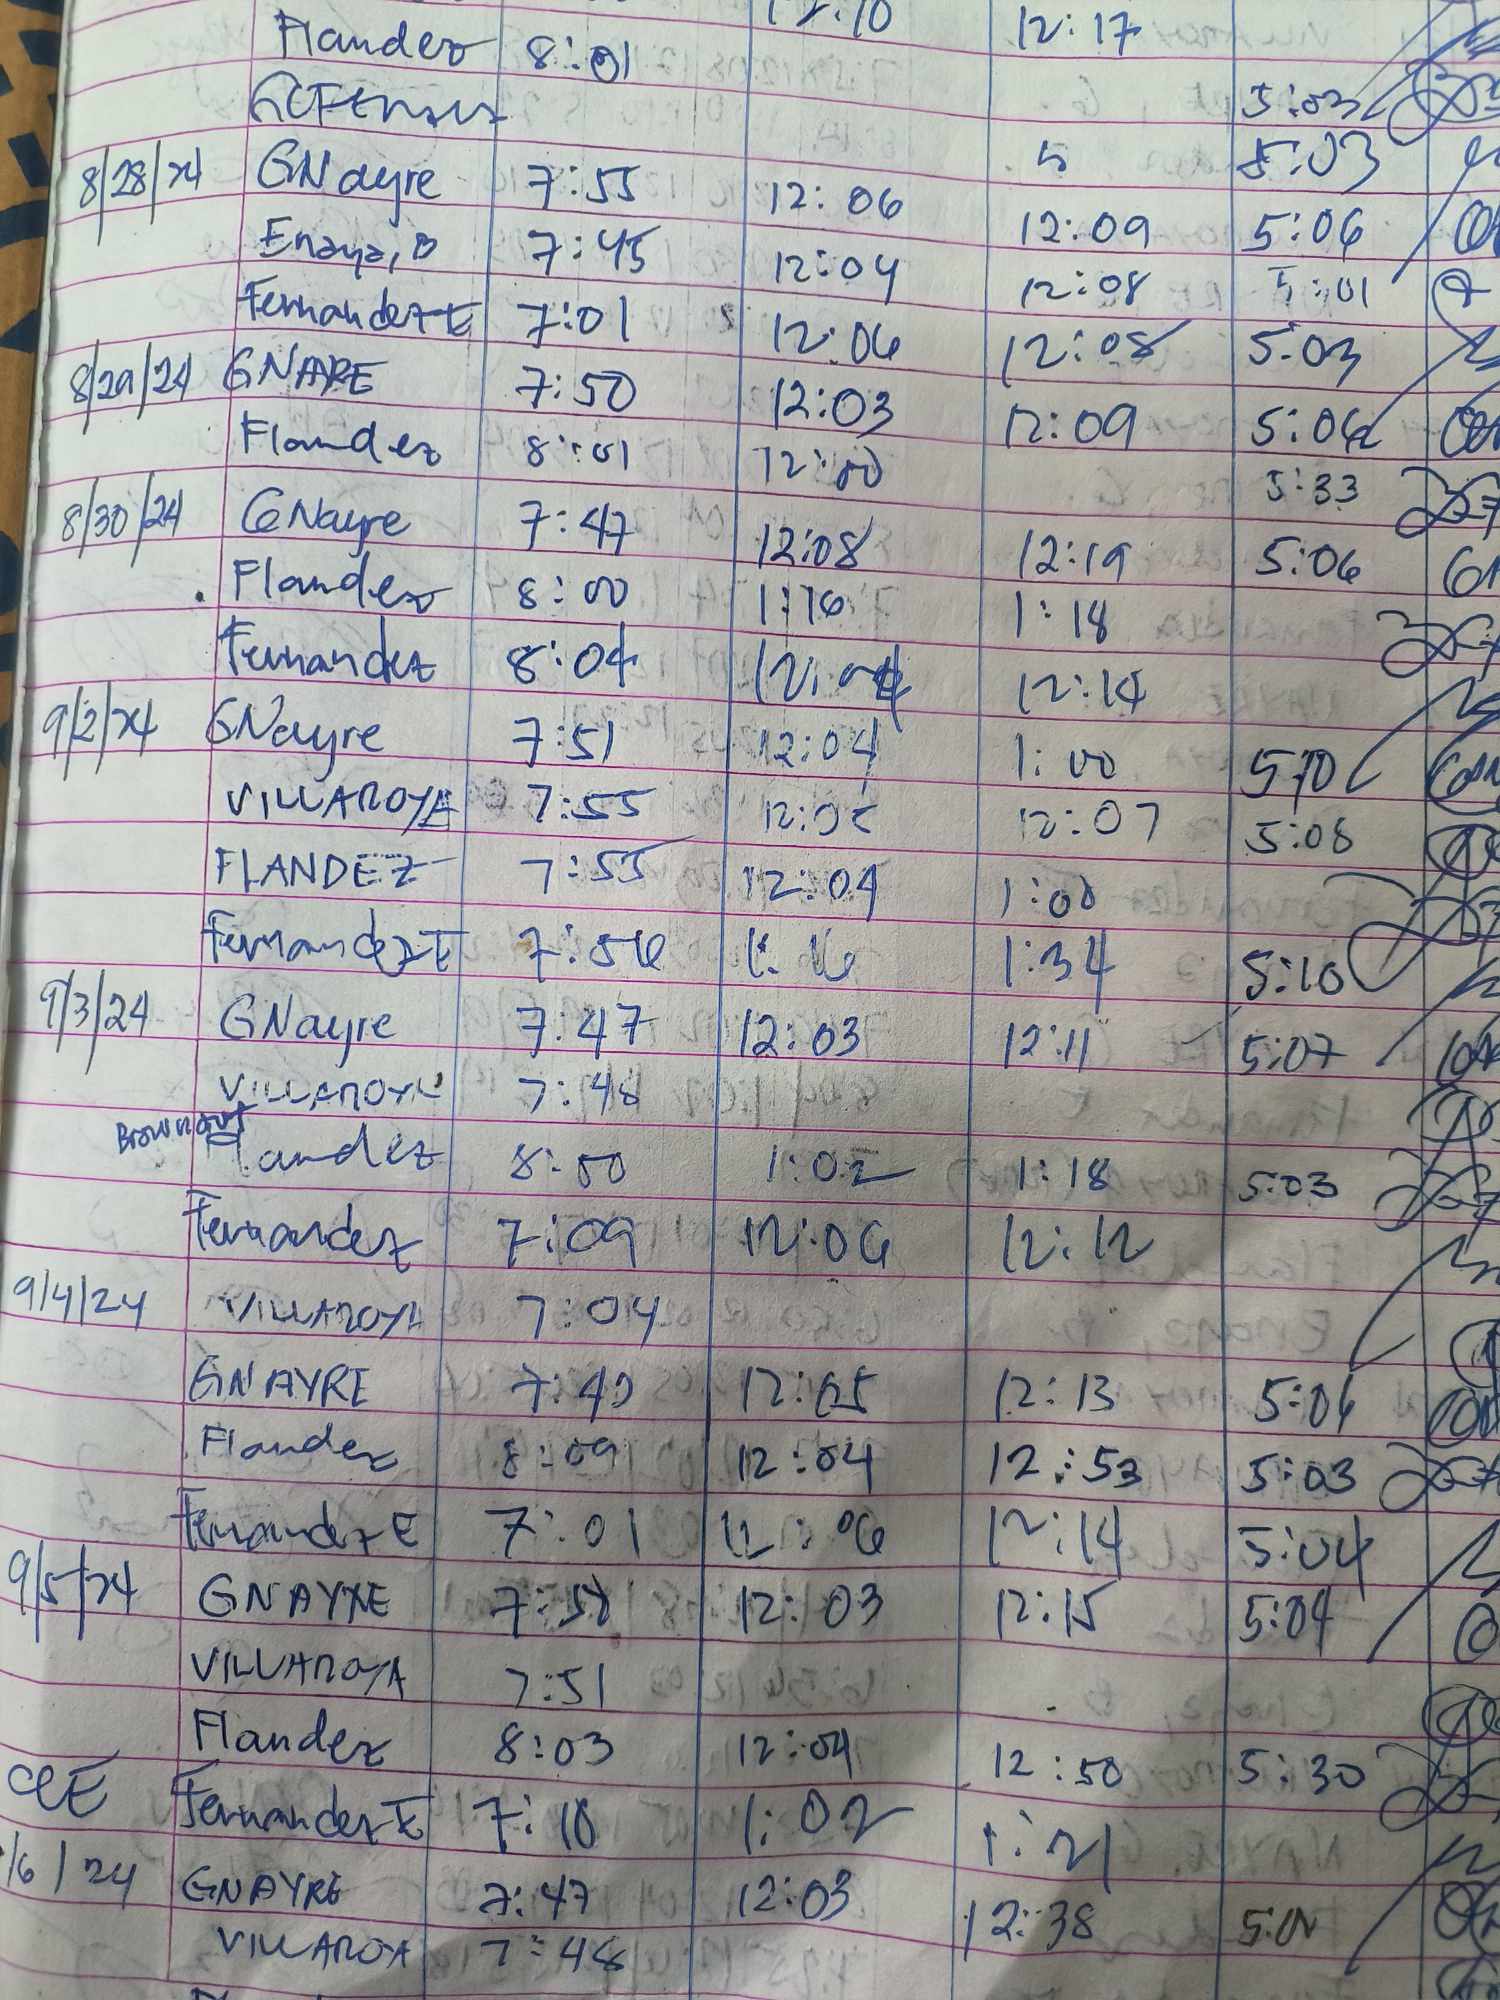 12:10 12:17
Flandez 8:01
5:03
8/28/24 GNayre 7:55 12:06 5:03
Enaya, B 7:45 12:04 12:09 5:06
Fernandez E 7:01 12:06 12:08 5:01
8/29/24 GNARE 7:50 12:03 12:08 5:03
Flandez 8:01 12:00 12:09 5:06
5:33
8/30/24 GNayre 7:47 12:08 12:19 5:06
Flandez 8:00 1:16 1:18
Fernandez 8:04 12:04 12:14
9/2/24 GNayre 7:51 12:04 1:00 5:10
VILLAROYA 7:55 12:07 5:08
FLANDEZ 7:55 12:04 1:00
Fernandez E 7:56 1:16 1:34 5:10
9/3/24 GNayre 7:47 12:03 12:11 5:07
VILLAROYA 7:48
Brownout
Flandez 8:00 1:02 1:18 5:03
Fernandez 7:09 12:06 12:12
9/4/24 VILLAROYA 7:04
GNAYRE 12:05 12:13 5:06
Flandez 8:09 12:04 12:53 5:03
Fernandez E 7:01 12:06 12:14 5:04
9/5/24 GNAYRE 12:03 12:15 5:04
VILLAROYA 7:51
Flandez 8:03 12:04 12:50 5:30
Fernandez E 7:10 1:02 1:21
/6/24 GNAYRE 7:47 12:03 12:38
VILLAROYA 7:48